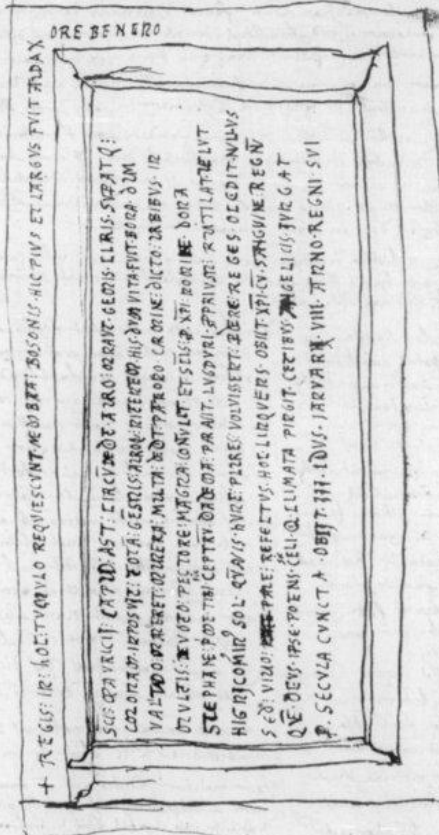 + REGIS: IN: hOC: TVMVLO REQVIESCVNT MEMBRA: BOSONIS: HIC PIVS ET LARGVS FVIT AVDAX
ORE BENIGNO
SCI: MAVRICII: CAPVD: AST: CIRCVDEDIT AVRO: ORNAVIT GEMIS: CLARIS: SVPATQ:
CORONAM: IMPOSVIT: TOTA: GEMIS: AVROQ: NITENTEM: HIS: DVM VITA FVIT: BONA: DVM
VALITVDO MANERET: MVNERA: MVLTA: DEDIT PATRONO CARMINE: DICTO: VRBIBVS: IN
MVLTIS: DEVOTO: PECTORE: MAGNA: CONTVLIT ET SCIS: P. XPI: NOMINE DONA
STEPHANE: PME TIBI CEPTRV: DIADEMA: PRAVIT: LVGDVNI: PPRIVM: RVTILAT VELVT
HIC SOL QVAVIS HVNC: PLVRES VOLVISENT: PDERE: REGES OCCDIT NVLLVS
SED: VIVO: PANE: REFECTVS: HOC LINQVENS: OBIIT XPI: CV: SANGVINE REGNV
QVE DEVS: IPSE POTENS: CELI: Q CLIMATA FINGIT. CETIBVS ANGELICIS IVNGAT
P. SECVLA CVNCTA. OBIIT III IDVS IANVARII VIII ANNO REGNI SVI